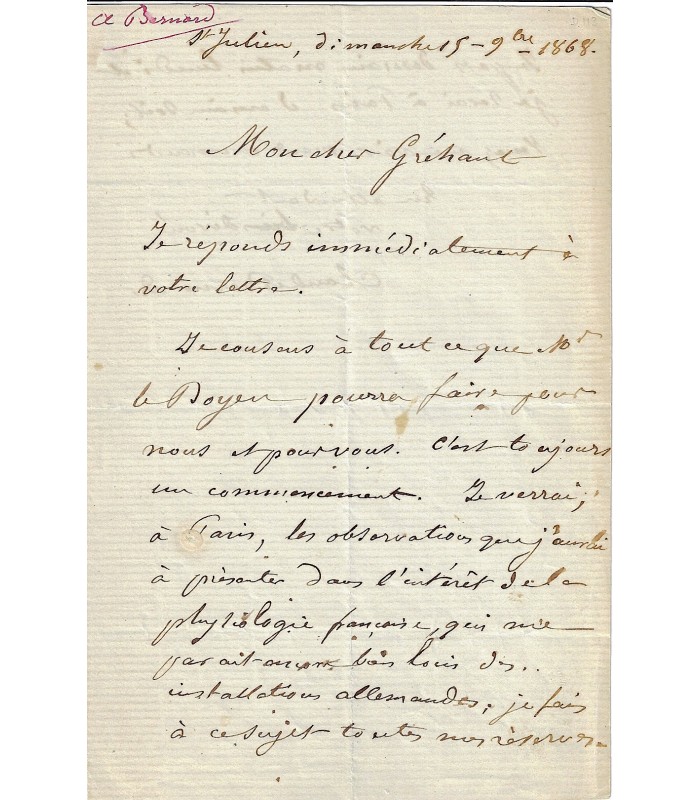 Cl Bernard
St Julien, dimanche 15 - 9bre 1868.
Mon cher Gréhant
Je réponds immédiatement à
votre lettre.
Je consens à tout ce que Mr
le Doyen pourra faire pour
nous et pour vous. C'est toujours
un commencement. Je verrai,
à Paris, les observations que j'aurai
à présenter dans l'intérêt de la
physiologie française, qui me
parait encore bien loin des..
installations allemandes; je fais
à ce sujet toutes mes réserves.